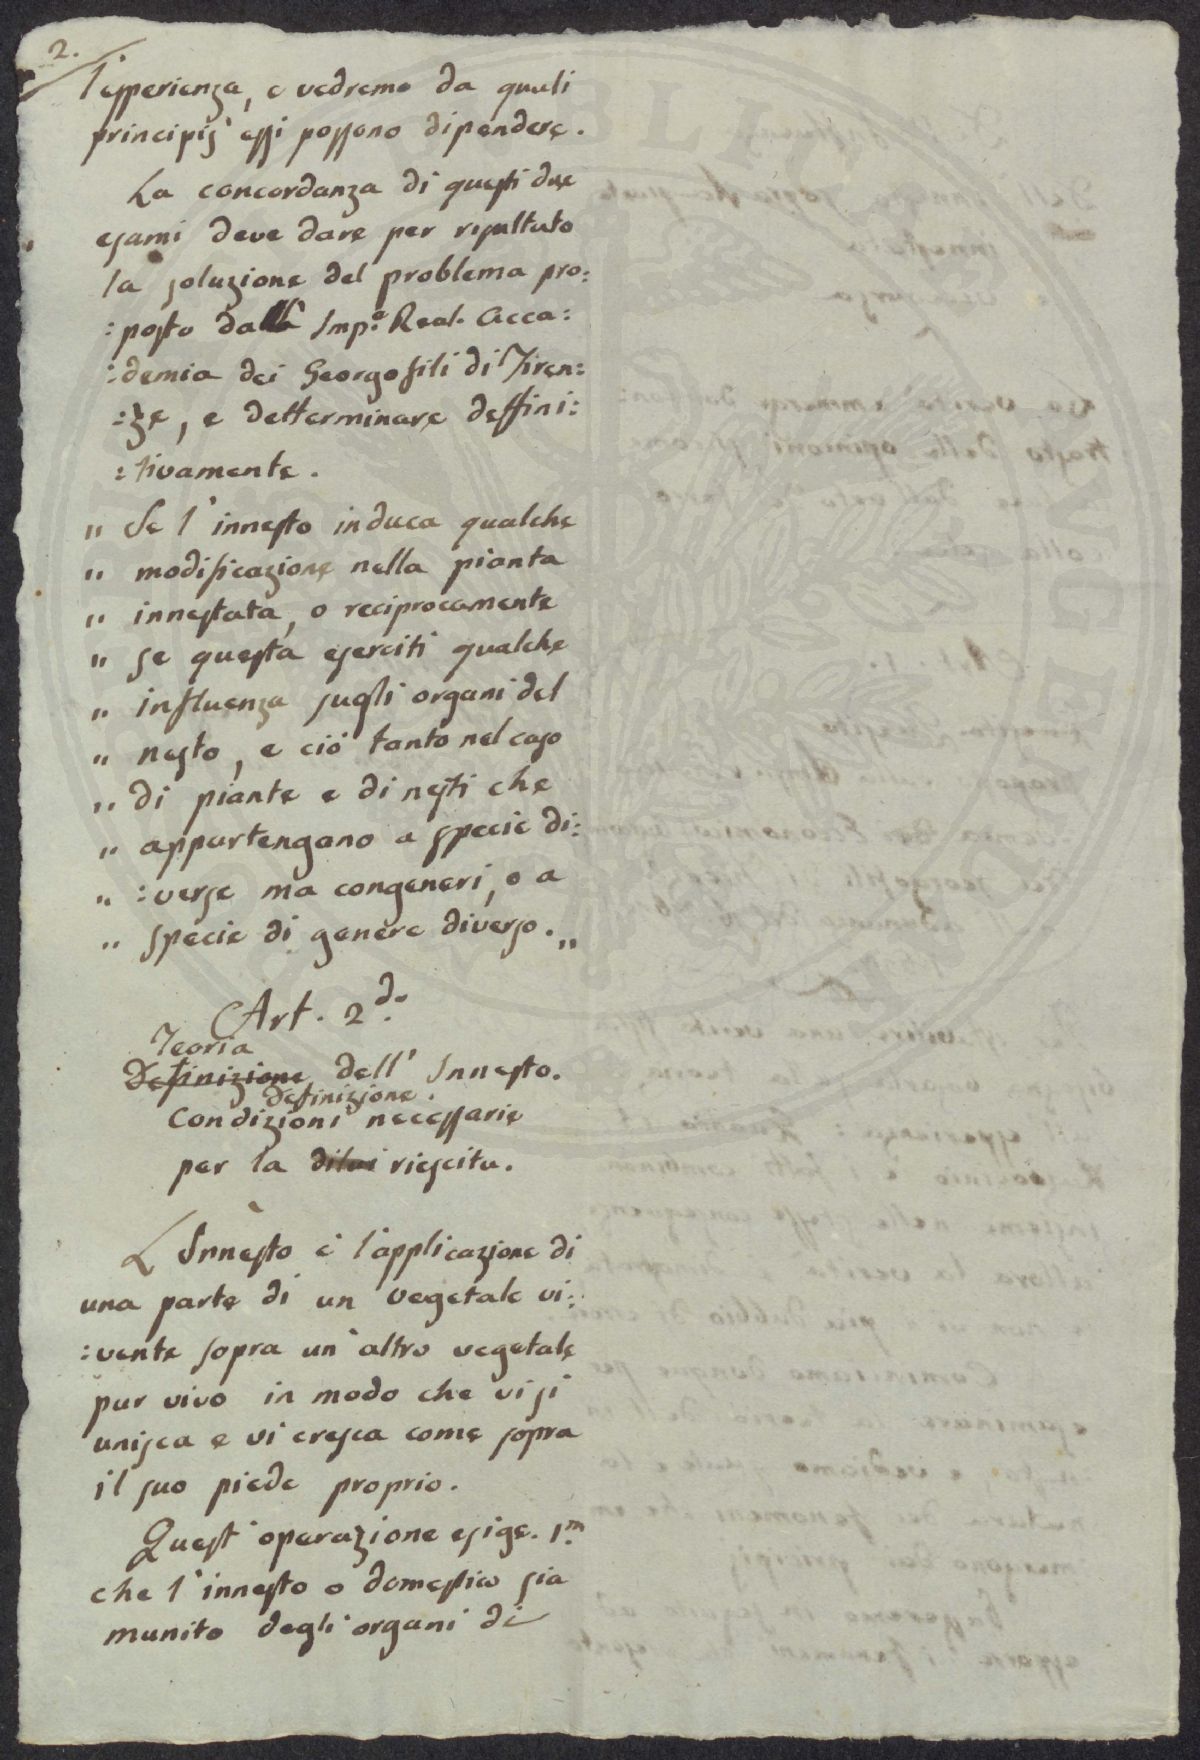 2.
l'esperienza, e vedremo da quali
principij essi possono dipendere.
La concordanza di questi due
esami deve dare per risultato
la soluzione del problema pro:
:posto dall' Imp.e Real. Acca:
:demia dei Georgofili di Firen:
:ze, e detterminare deffini:
:tivamente.
" Se l'innesto induca qualche
" modificazione nella pianta
" innestata, o reciprocamente
" se questa eserciti qualche
" influenza sugli organi del
" nesto, e ciò tanto nel caso
" di piante e di nesti che
" appartengano a specie di:
" :verse ma congeneri, o a
" specie di genere diverso. "
Art. 2.do
Teoria
Definizione dell' Innesto.
definizione.
Condizioni necessarie
per la di lui riescita.
L'Innesto è l'applicazione di
una parte di un vegetale vi:
:vente sopra un'altro vegetale
pur vivo in modo che vi si
unisca e vi cresca come sopra
il suo piede proprio.
Quest'operazione esige. 1.m
che l'innesto o domestico sia
munito degli organi di